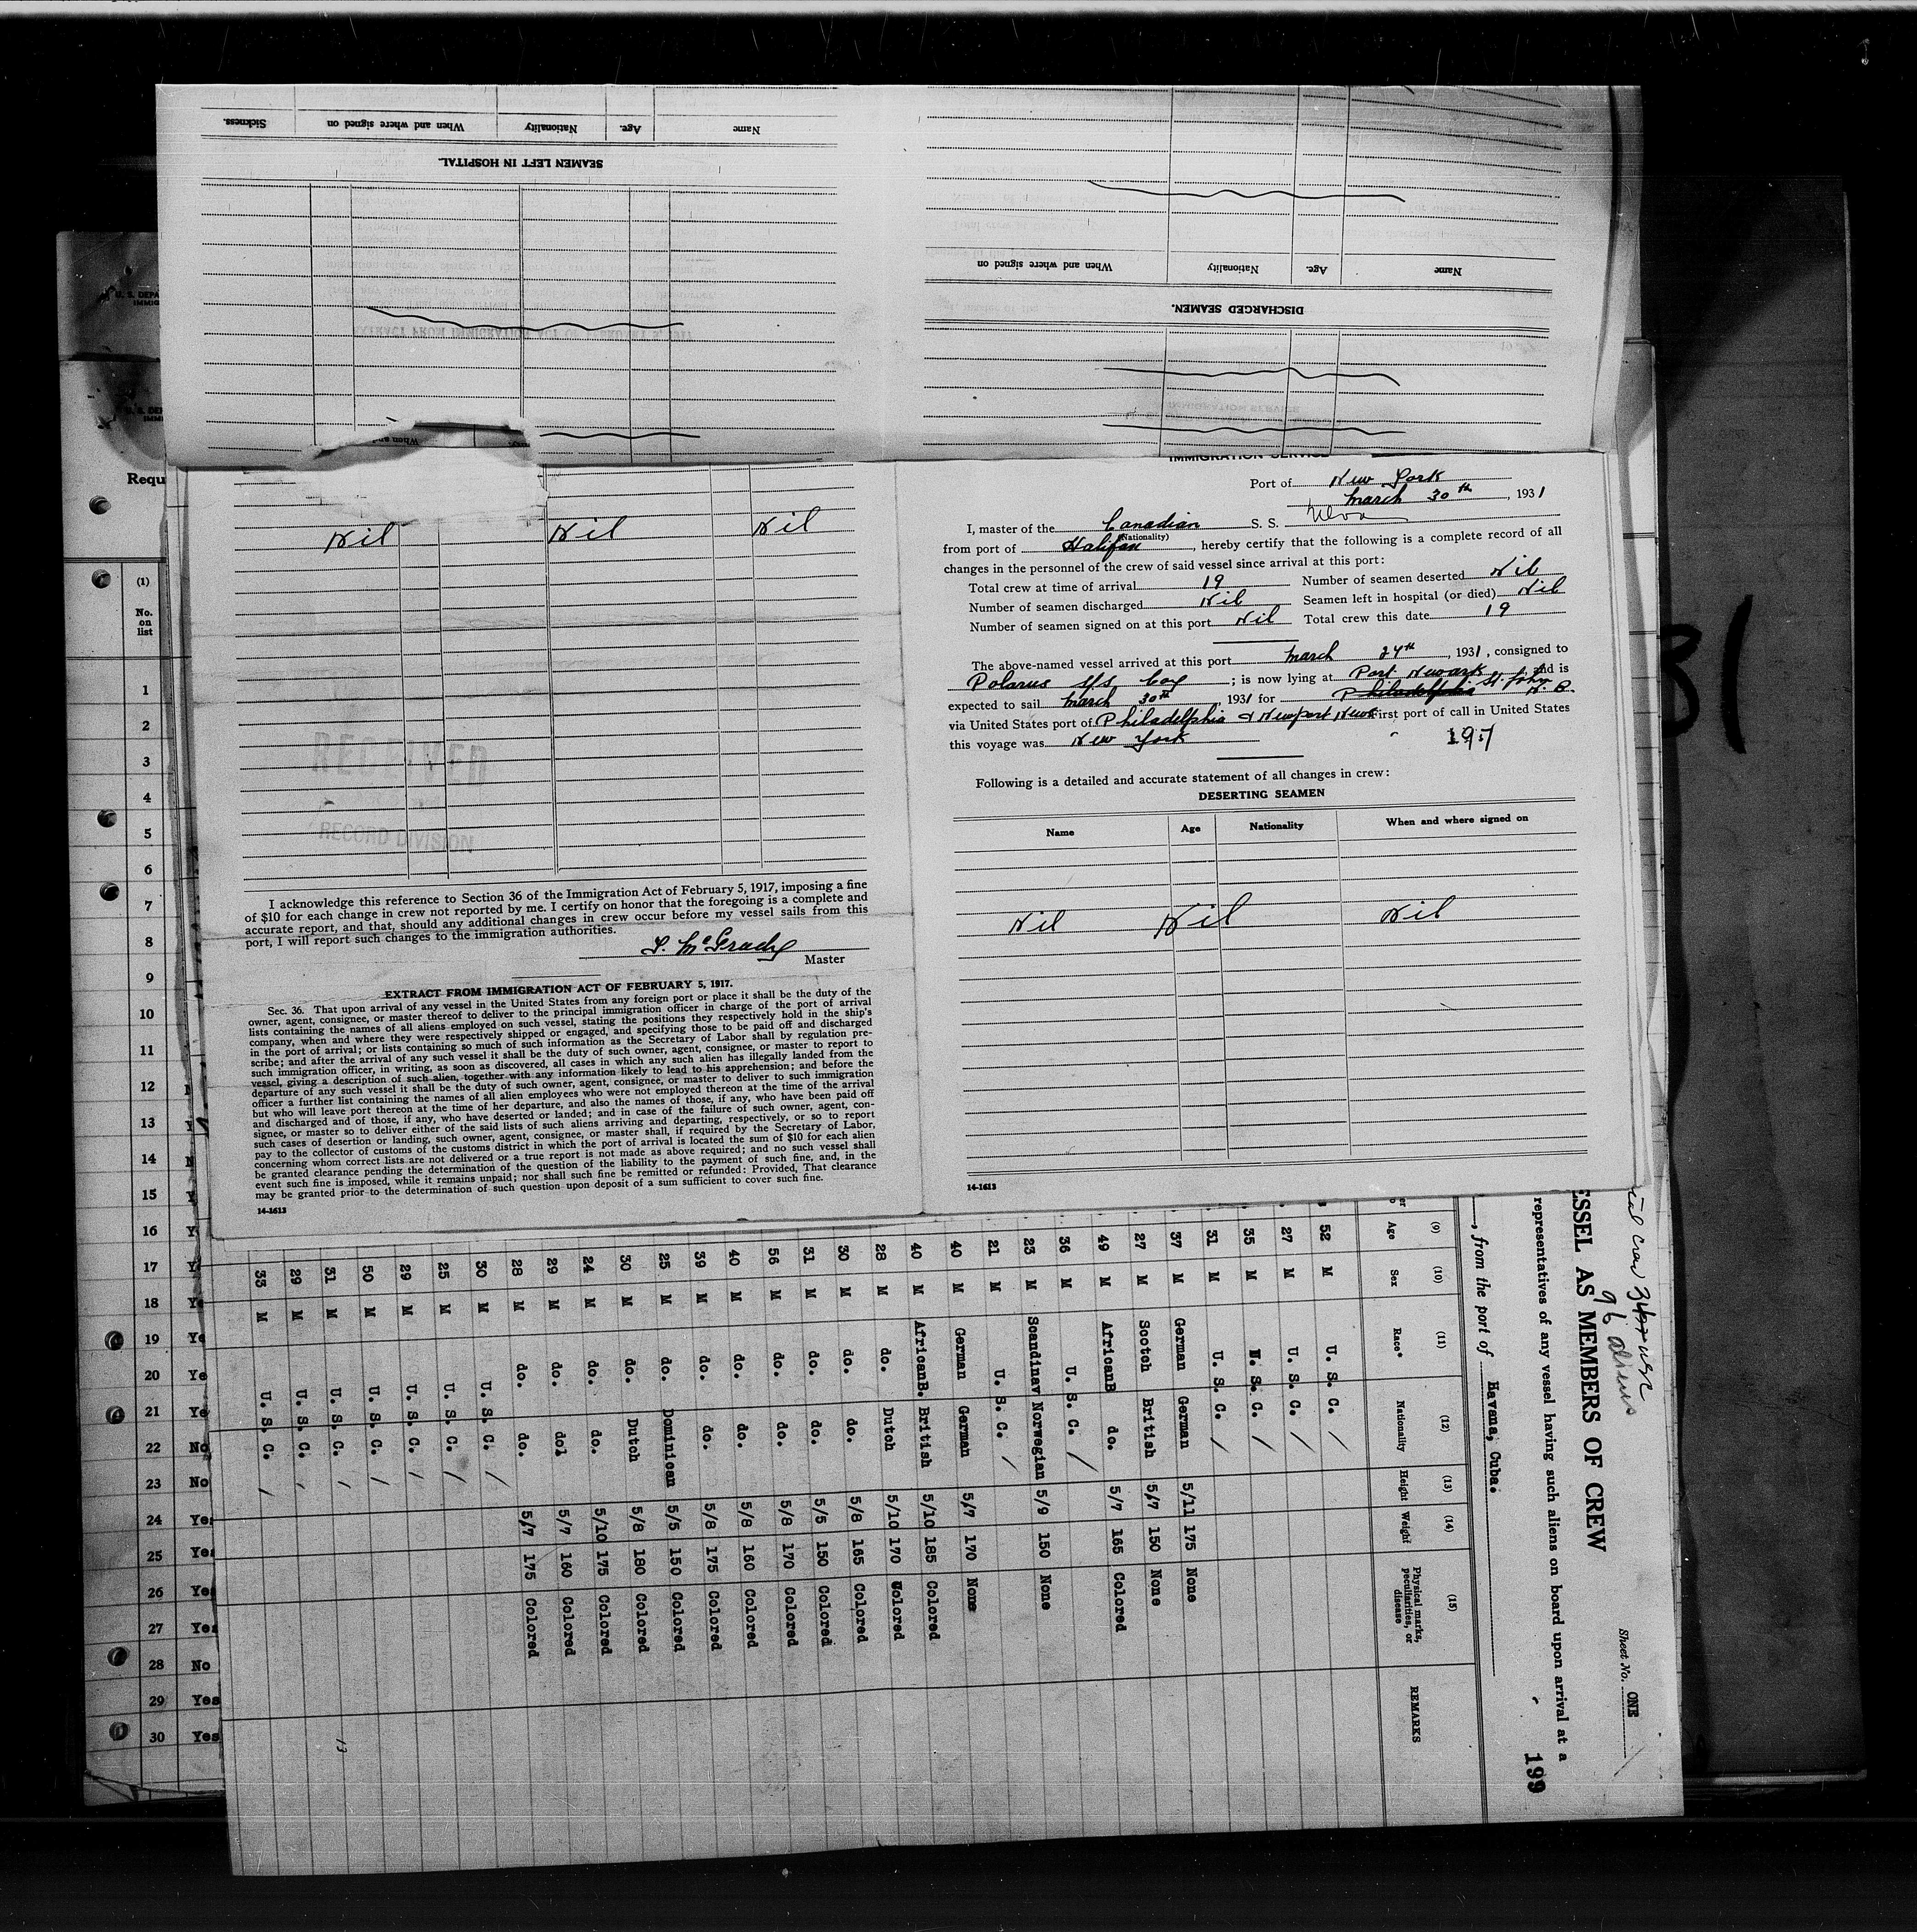 Sickness.
When and where signed on
Nationality
Age.
Name
SEAMEN LEFT IN HOSPITAL.
When and where signed on
Nationality
Age.
Name
DISCHARGED SEAMEN.
Nil Nil Nil
RECEIVED
RECORD DIVISION
I acknowledge this reference to Section 36 of the Immigration Act of February 5, 1917, imposing a fine
of $10 for each change in crew not reported by me. I certify on honor that the foregoing is a complete and
accurate report, and that, should any additional changes in crew occur before my vessel sails from this
port, I will report such changes to the immigration authorities.
Master
EXTRACT FROM IMMIGRATION ACT OF FEBRUARY 5, 1917.
Sec. 36. That upon arrival of any vessel in the United States from any foreign port or place it shall be the duty of the
owner, agent, consignee, or master thereof to deliver to the principal immigration officer in charge of the port of arrival
lists containing the names of all aliens employed on such vessel, stating the positions they respectively hold in the ship's
company, when and where they were respectively shipped or engaged, and specifying those to be paid off and discharged
in the port of arrival; or lists containing so much of such information as the Secretary of Labor shall by regulation pre-
scribe; and after the arrival of any such vessel it shall be the duty of such owner, agent, consignee, or master to report to
such immigration officer, in writing, as soon as discovered, all cases in which any such alien has illegally landed from the
vessel, giving a description of such alien, together with any information likely to lead to his apprehension; and before the
departure of any such vessel it shall be the duty of such owner, agent, consignee, or master to deliver to such immigration
officer a further list containing the names of all alien employees who were not employed thereon at the time of the arrival
but who will leave port thereon at the time of her departure, and also the names of those, if any, who have been paid off
and discharged and of those, if any, who have deserted or landed; and in case of the failure of such owner, agent, con-
signee, or master so to deliver either of the said lists of such aliens arriving and departing, respectively, or so to report
such cases of desertion or landing, such owner, agent, consignee, or master shall, if required by the Secretary of Labor,
pay to the collector of customs of the customs district in which the port of arrival is located the sum of $10 for each alien
concerning whom correct lists are not delivered or a true report is not made as above required; and no such vessel shall
be granted clearance pending the determination of the question of the liability to the payment of such fine, and, in the
event such fine is imposed, while it remains unpaid; nor shall such fine be remitted or refunded: Provided, That clearance
may be granted prior to the determination of such question upon deposit of a sum sufficient to cover such fine.
14-1613
IMMIGRATION SERVICE
Port of New York
March 30th, 1931
I, master of the Canadian S. S. Ulva
(Nationality)
from port of Halifax, hereby certify that the following is a complete record of all
changes in the personnel of the crew of said vessel since arrival at this port:
Total crew at time of arrival 19 Number of seamen deserted Nil
Number of seamen discharged Nil Seamen left in hospital (or died) Nil
Number of seamen signed on at this port Nil Total crew this date 19
The above-named vessel arrived at this port March 24th, 1931, consigned to
Polarus S/S Coy; is now lying at Port Newark and is
expected to sail March 30th, 1931 for Philadelphia St. John N. B.
via United States port of Philadelphia & Newport News First port of call in United States
this voyage was New York
197
Following is a detailed and accurate statement of all changes in crew:
DESERTING SEAMEN
Name Age Nationality When and where signed on
Nil Nil Nil
14-1613
Requ
(1)
No.
on
list
1
2
3
4
5
6
7
8
9
10
11
12
13
14
15
16
17
18
19 Ye
20 Ye
21 Ye
22 No
23 No
24 Yes
25 Yes
26 Yes
27 Yes
28 No
29 Yes
30 Yes
31
Sheet No. ONE
96 aliens
ESSEL AS MEMBERS OF CREW
representatives of any vessel having such aliens on board upon arrival at a
199
, from the port of Havana, Cuba.
(9) (10) (11) (12) (13) (14) (15)
Age Sex Race* Nationality Height Weight Physical marks, peculiarities, or disease REMARKS
52 M U. S. C. /
27 M U. S. C. /
35 M U. S. C. /
31 M U. S. C. /
37 M German German 5/11 175 None
27 M Scotch British 5/7 150 None
49 M AfricanB do. 5/7 165 Colored
36 M U. S. C. /
23 M Scandinav Norwegian 5/9 150 None
21 M U. S. C. /
40 M German German 5/7 170 None
40 M AfricanB. British 5/10 185 Colored
28 M do. Dutch 5/10 170 Colored
30 M do. do. 5/8 165 Colored
31 M do. do. 5/5 150 Colored
56 M do. do. 5/8 170 Colored
40 M do. do. 5/8 160 Colored
39 M do. do. 5/8 175 Colored
25 M do. Dominican 5/5 150 Colored
30 M do. Dutch 5/8 180 Colored
24 M do. do. 5/10 175 Colored
29 M do. dol 5/7 160 Colored
28 M do. do. 5/7 175 Colored
30 M U. S. C. /
25 M U. S. C. /
29 M U. S. C. /
50 M U. S. C. /
31 M U. S. C. /
29 M U. S. C. /
33 M U. S. C. /
13